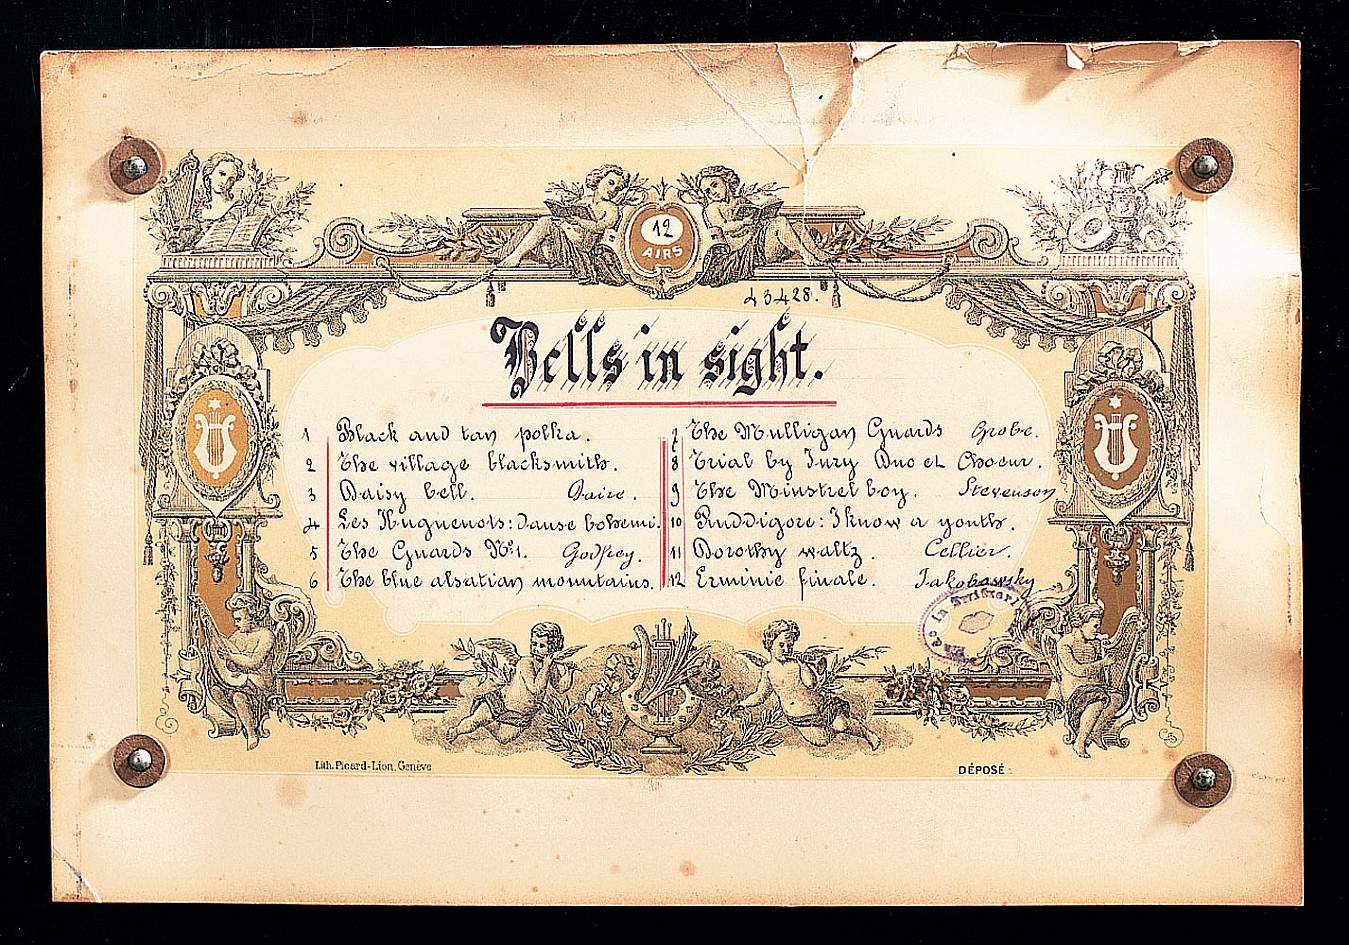 12
AIRS
43428.
Bells in sight.
1 Black and tan polka.
2 The village blacksmith.
3 Daisy bell. Daire.
4 Les Huguenots: Danse bohemi.
5 The Guards No. 1. Godfrey.
6 The blue alsatian mountains.
7 The Mulligan Guards Grobe.
8 Trial by Jury Duo et Choeur.
9 The Minstrel boy. Stevenson
10 Ruddigore: I know a youth.
11 Dorothy waltz. Cellier.
12 Erminie finale. Jakobowsky
Made in Switzerland
Lith. Picard-Lion, Genève
DÉPOSÉ